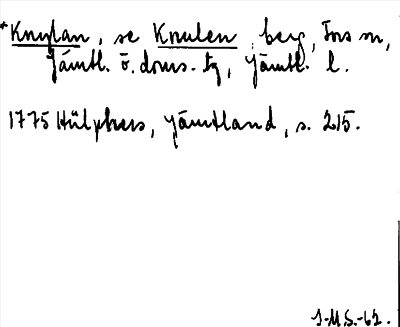 *Knylan, se Knulen, berg, Fors sn,
Jämtl. ö. doms. tg, Jämtl. l.
1775 Hülphers, Jämtland, s. 215.
J-M S.-62.